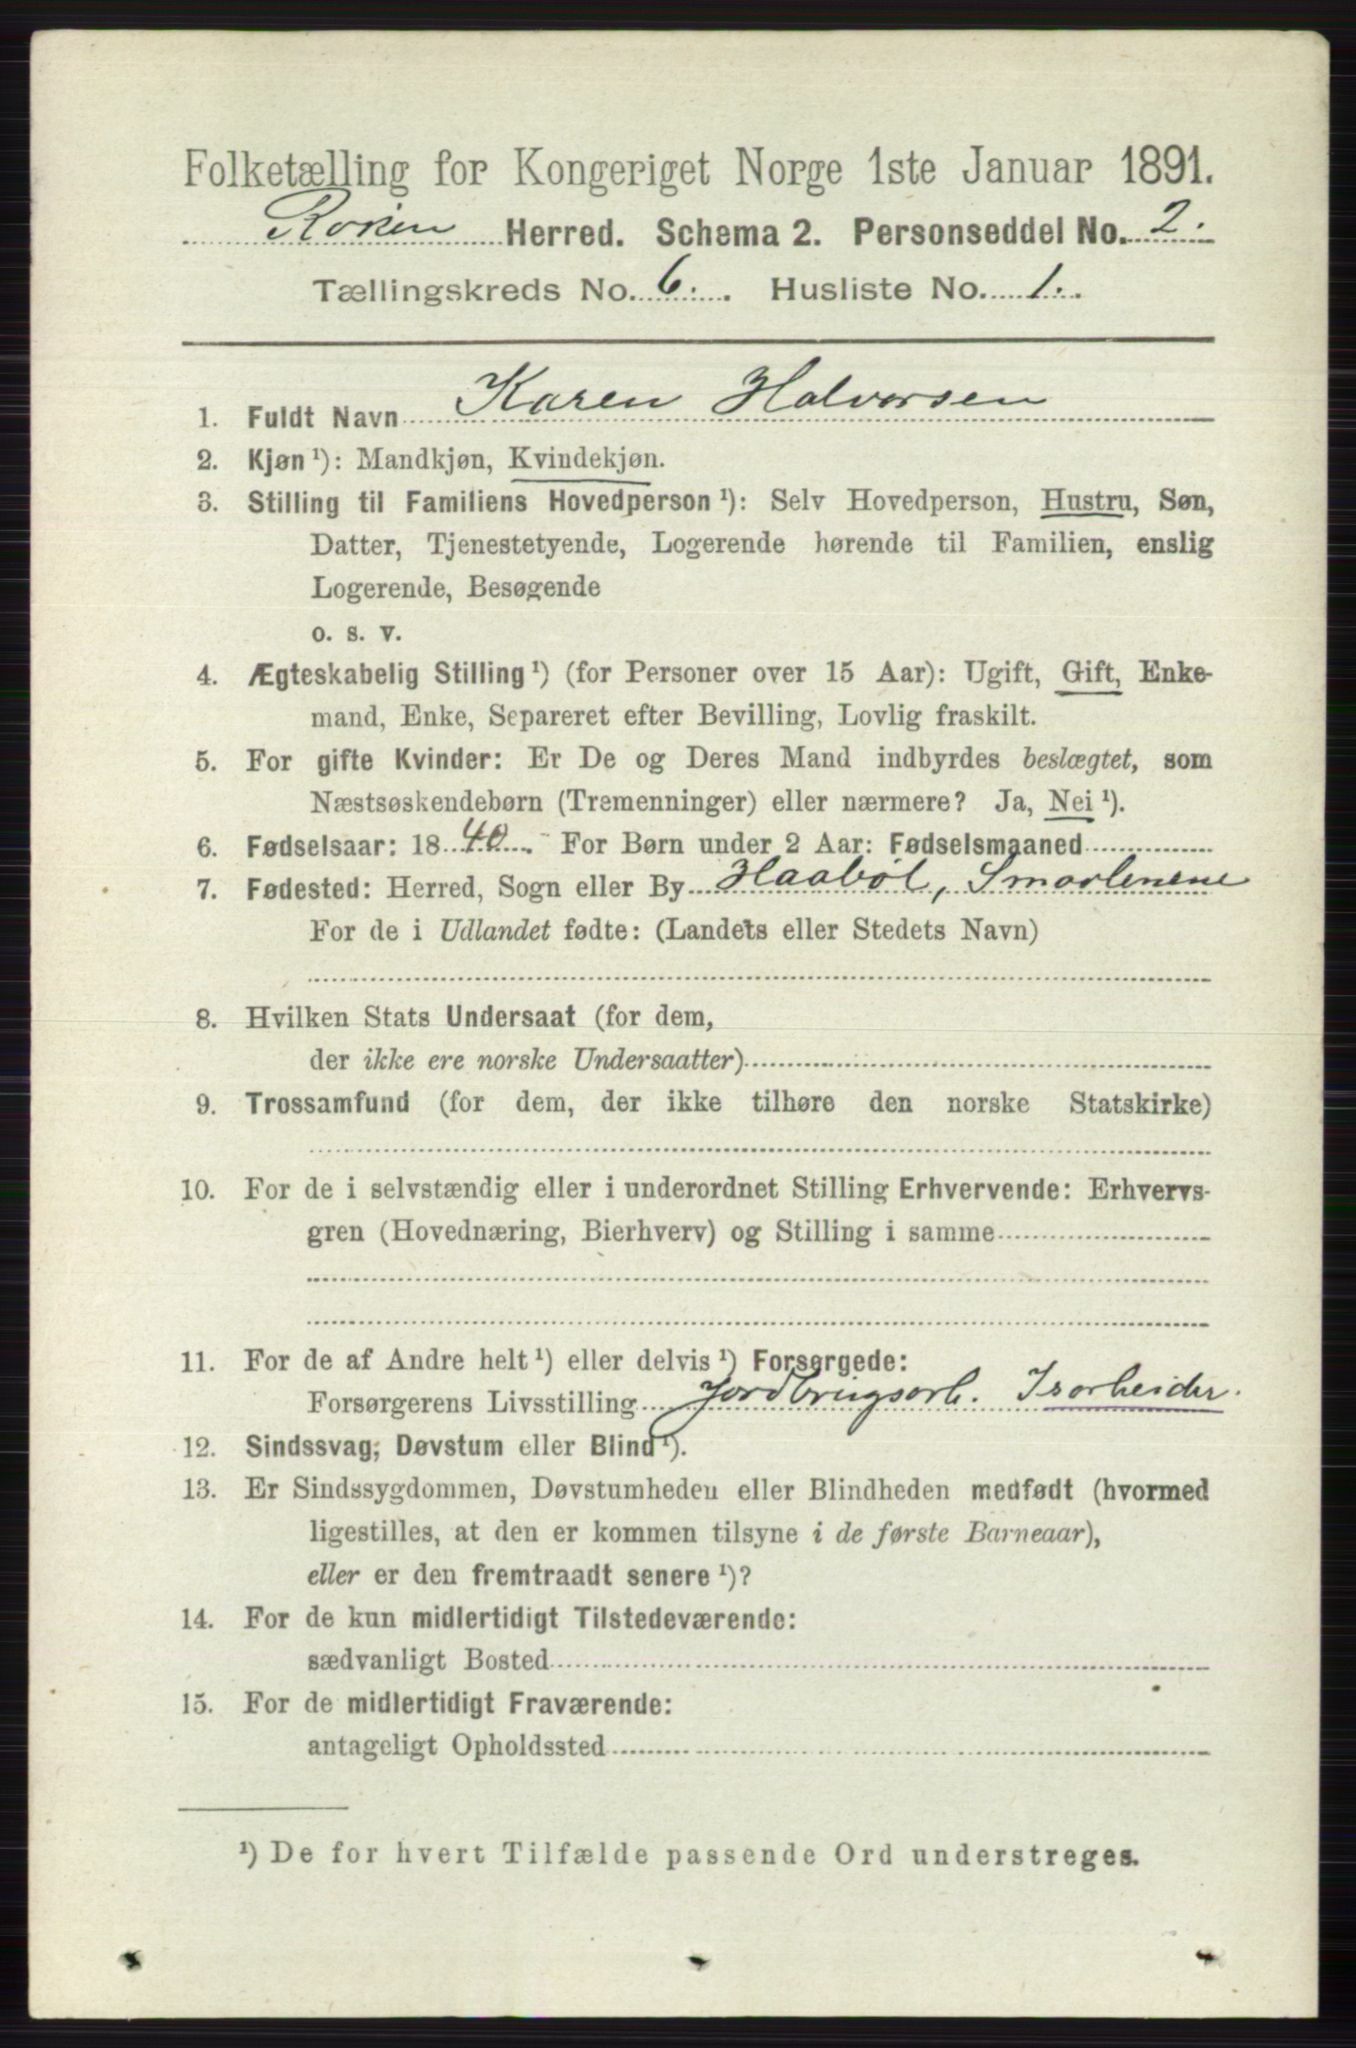 Folketælling for Kongeriget Norge 1ste Januar 1891.
Røken Herred. Schema 2. Personseddel No. 2.
Tællingskreds No. 6. Husliste No. 1.
1. Fuldt Navn Karen Halvorsen
2. Kjøn ¹): Mandkjøn, Kvindekjøn.
3. Stilling til Familiens Hovedperson ¹): Selv Hovedperson, Hustru, Søn,
Datter, Tjenestetyende, Logerende hørende til Familien, enslig
Logerende, Besøgende
o. s. v.
4. Ægteskabelig Stilling ¹) (for Personer over 15 Aar): Ugift, Gift, Enke-
mand, Enke, Separeret efter Bevilling, Lovlig fraskilt.
5. For gifte Kvinder: Er De og Deres Mand indbyrdes beslægtet, som
Næstsøskendebørn (Tremenninger) eller nærmere? Ja, Nei ¹).
6. Fødselsaar: 1840. For Børn under 2 Aar: Fødselsmaaned
7. Fødested: Herred, Sogn eller By Haabøl, Smaalenene
For de i Udlandet fødte: (Landets eller Stedets Navn)
8. Hvilken Stats Undersaat (for dem,
der ikke ere norske Undersaatter)
9. Trossamfund (for dem, der ikke tilhøre den norske Statskirke)
10. For de i selvstændig eller i underordnet Stilling Erhvervende: Erhvervs-
gren (Hovednæring, Bierhverv) og Stilling i samme
11. For de af Andre helt ¹) eller delvis ¹) Forsørgede:
Forsørgerens Livsstilling Jordbrugsarb. Isarbeider.
12. Sindssvag, Døvstum eller Blind ¹).
13. Er Sindssygdommen, Døvstumheden eller Blindheden medfødt (hvormed
ligestilles, at den er kommen tilsyne i de første Barneaar),
eller er den fremtraadt senere ¹)?
14. For de kun midlertidigt Tilstedeværende:
sædvanligt Bosted
15. For de midlertidigt Fraværende:
antageligt Opholdssted
¹) De for hvert Tilfælde passende Ord understreges.